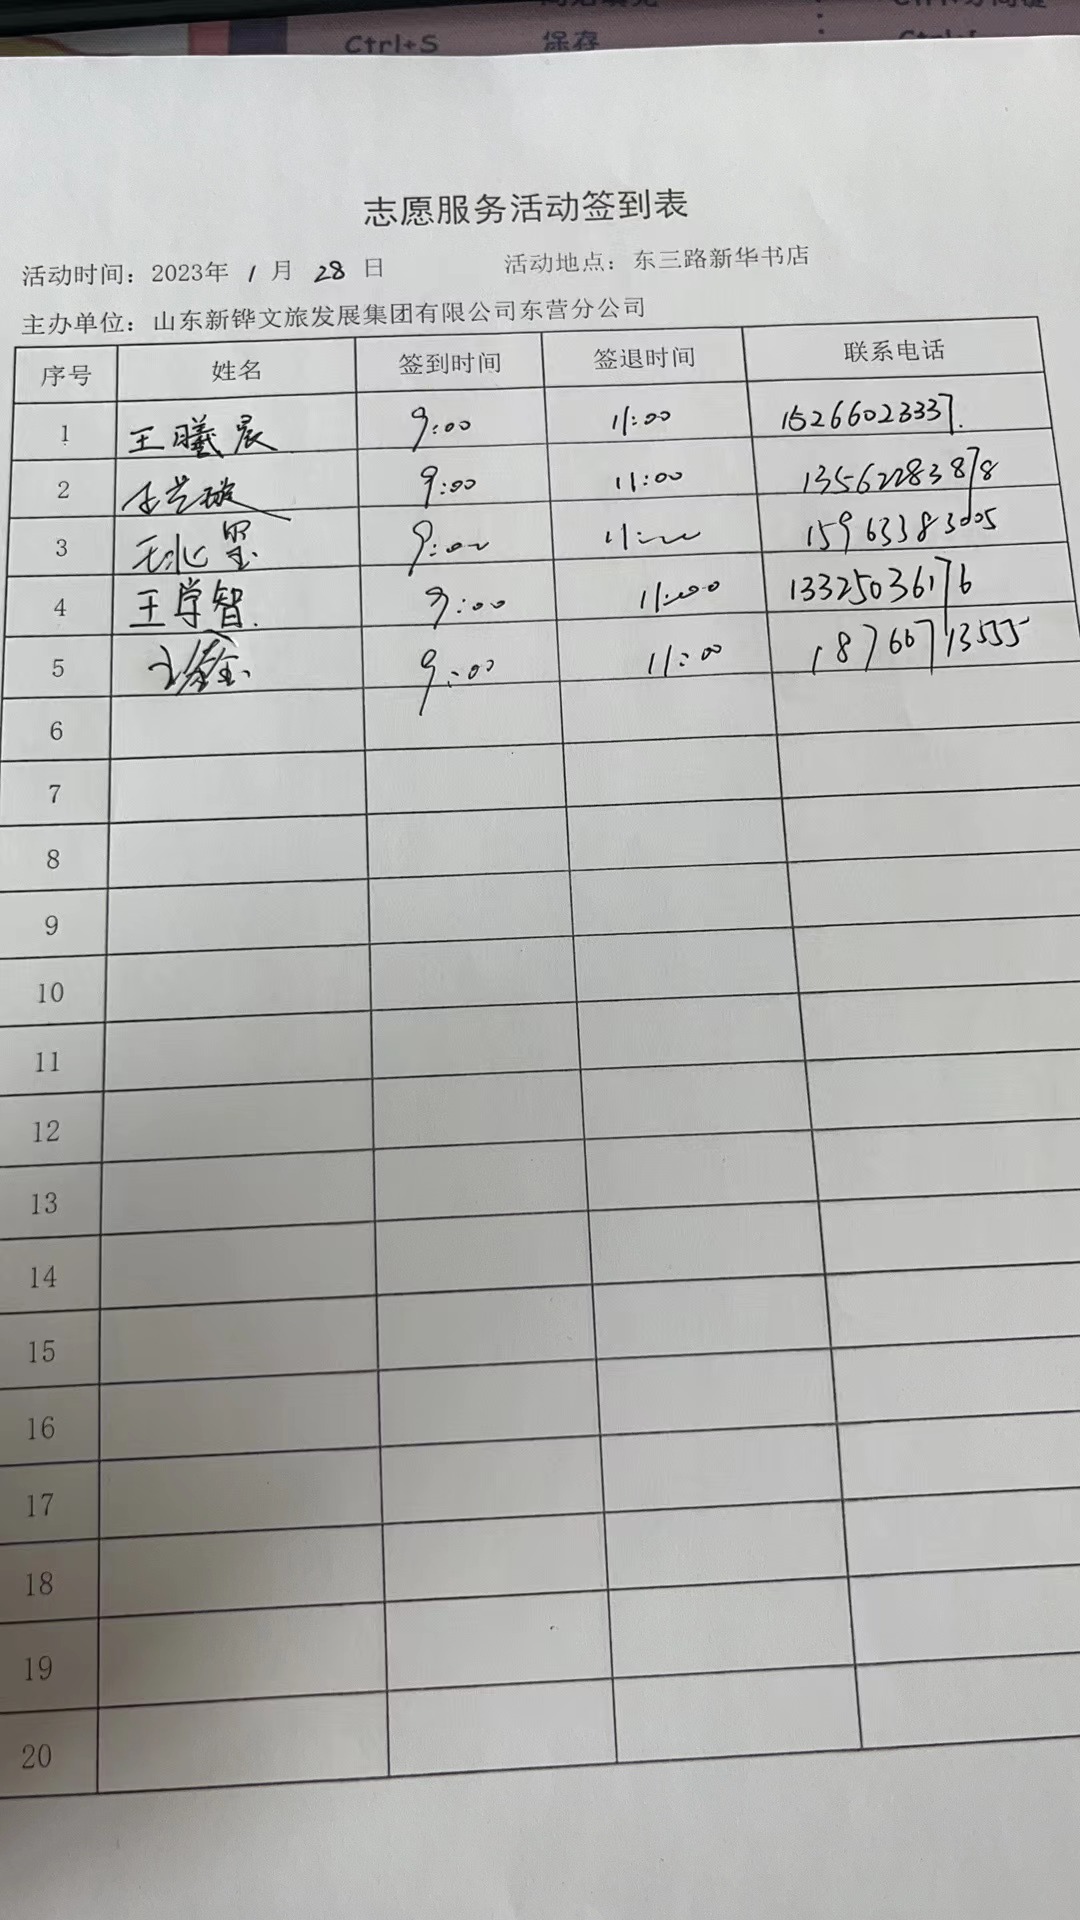 Ctrl+S 保存
志愿服务活动签到表
活动时间：2023年 1 月 28 日 活动地点：东三路新华书店
主办单位：山东新铧文旅发展集团有限公司东营分公司
序号 姓名 签到时间 签退时间 联系电话
1 王曦晨 9:00 11:00 15266023337.
2 9:00 11:00 13562283878
3 9:00 11:00 15963383005
4 王学智. 9:00 11:00 13325036176
5 9:00 11:00 18766713555
6
7
8
9
10
11
12
13
14
15
16
17
18
19
20